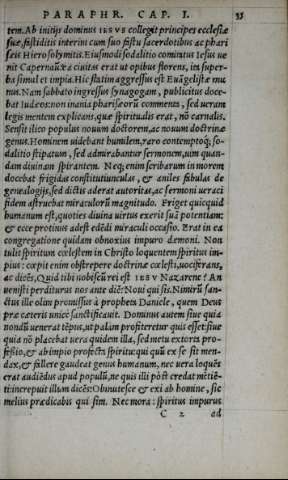 PARAPHR. CAP. I. 33
tem. Ab initijs dominus IESVS collegit principes ecclesiæ
suæ, fastiditis interim cum suo fastu sacerdotibus ac phari
seis Hierosolymitis. Eiusmodi sodalitio comitatus Iesus ue
nit Capernaū: ea ciuitas erat ut opibus florens, ita super-
ba simul et impia. Hic statim aggressus est Euāgelistæ mu
nus. Nam sabbato ingressus synagogam, publicitus doce-
bat Iudæos: non inania pharisæorū commenta, sed ueram
legis mentem explicans, quæ spiritualis erat, nō carnalis.
Sensit ilico populus nouum doctorem, ac nouum doctrinæ
genus. Hominem uidebant humilem, raro contemptoq́; so-
dalitio stipatum, sed admirabantur sermonem, uim quan-
dam diuinam spirantem. Neq; enim scribarum in morem
docebat frigidas constitutiunculas, & aniles fabulas de
genealogijs, sed dictis aderat autoritas, ac sermoni ueraci
fidem astruebat miraculorū magnitudo. Friget quicquid
humanum est, quoties diuina uirtus exerit suā potentiam:
& ecce protinus adest ędēdi miraculi occasio. Erat in ea
congregatione quidam obnoxius impuro dæmoni. Non
tulit spiritum cœlestem in Christo loquentem spiritus im-
pius: cœpit enim obstrepere doctrinæ cœlesti, uociferans,
ac dicēs, Quid tibi nobiscū rei est IESV Nazarene? An
uenisti perditurus nos ante diē? Noui qui sis. Nimirū san-
ctus ille olim promissus à propheta Daniele, quem Deus
præ cæteris unicè sanctificauit. Dominus autem siue quia
nondū uenerat tēpus, ut palam profiteretur quis esset: siue
quia nō placebat uera quidem illa, sed metu extorta pro-
fessio, & ab impio profecta spiritu: qui quū ex se sit men-
dax, & fallere gaudeat genus humanum, nec uera loquēs
erat audiēdus apud populū, ne quis illi pòst credat mētiē-
ti: increpuit illum dicēs: Obmutesce & exi ab homine, sic
melius prædicabis qui sim. Nec mora: spiritus impurus
C 2 ad